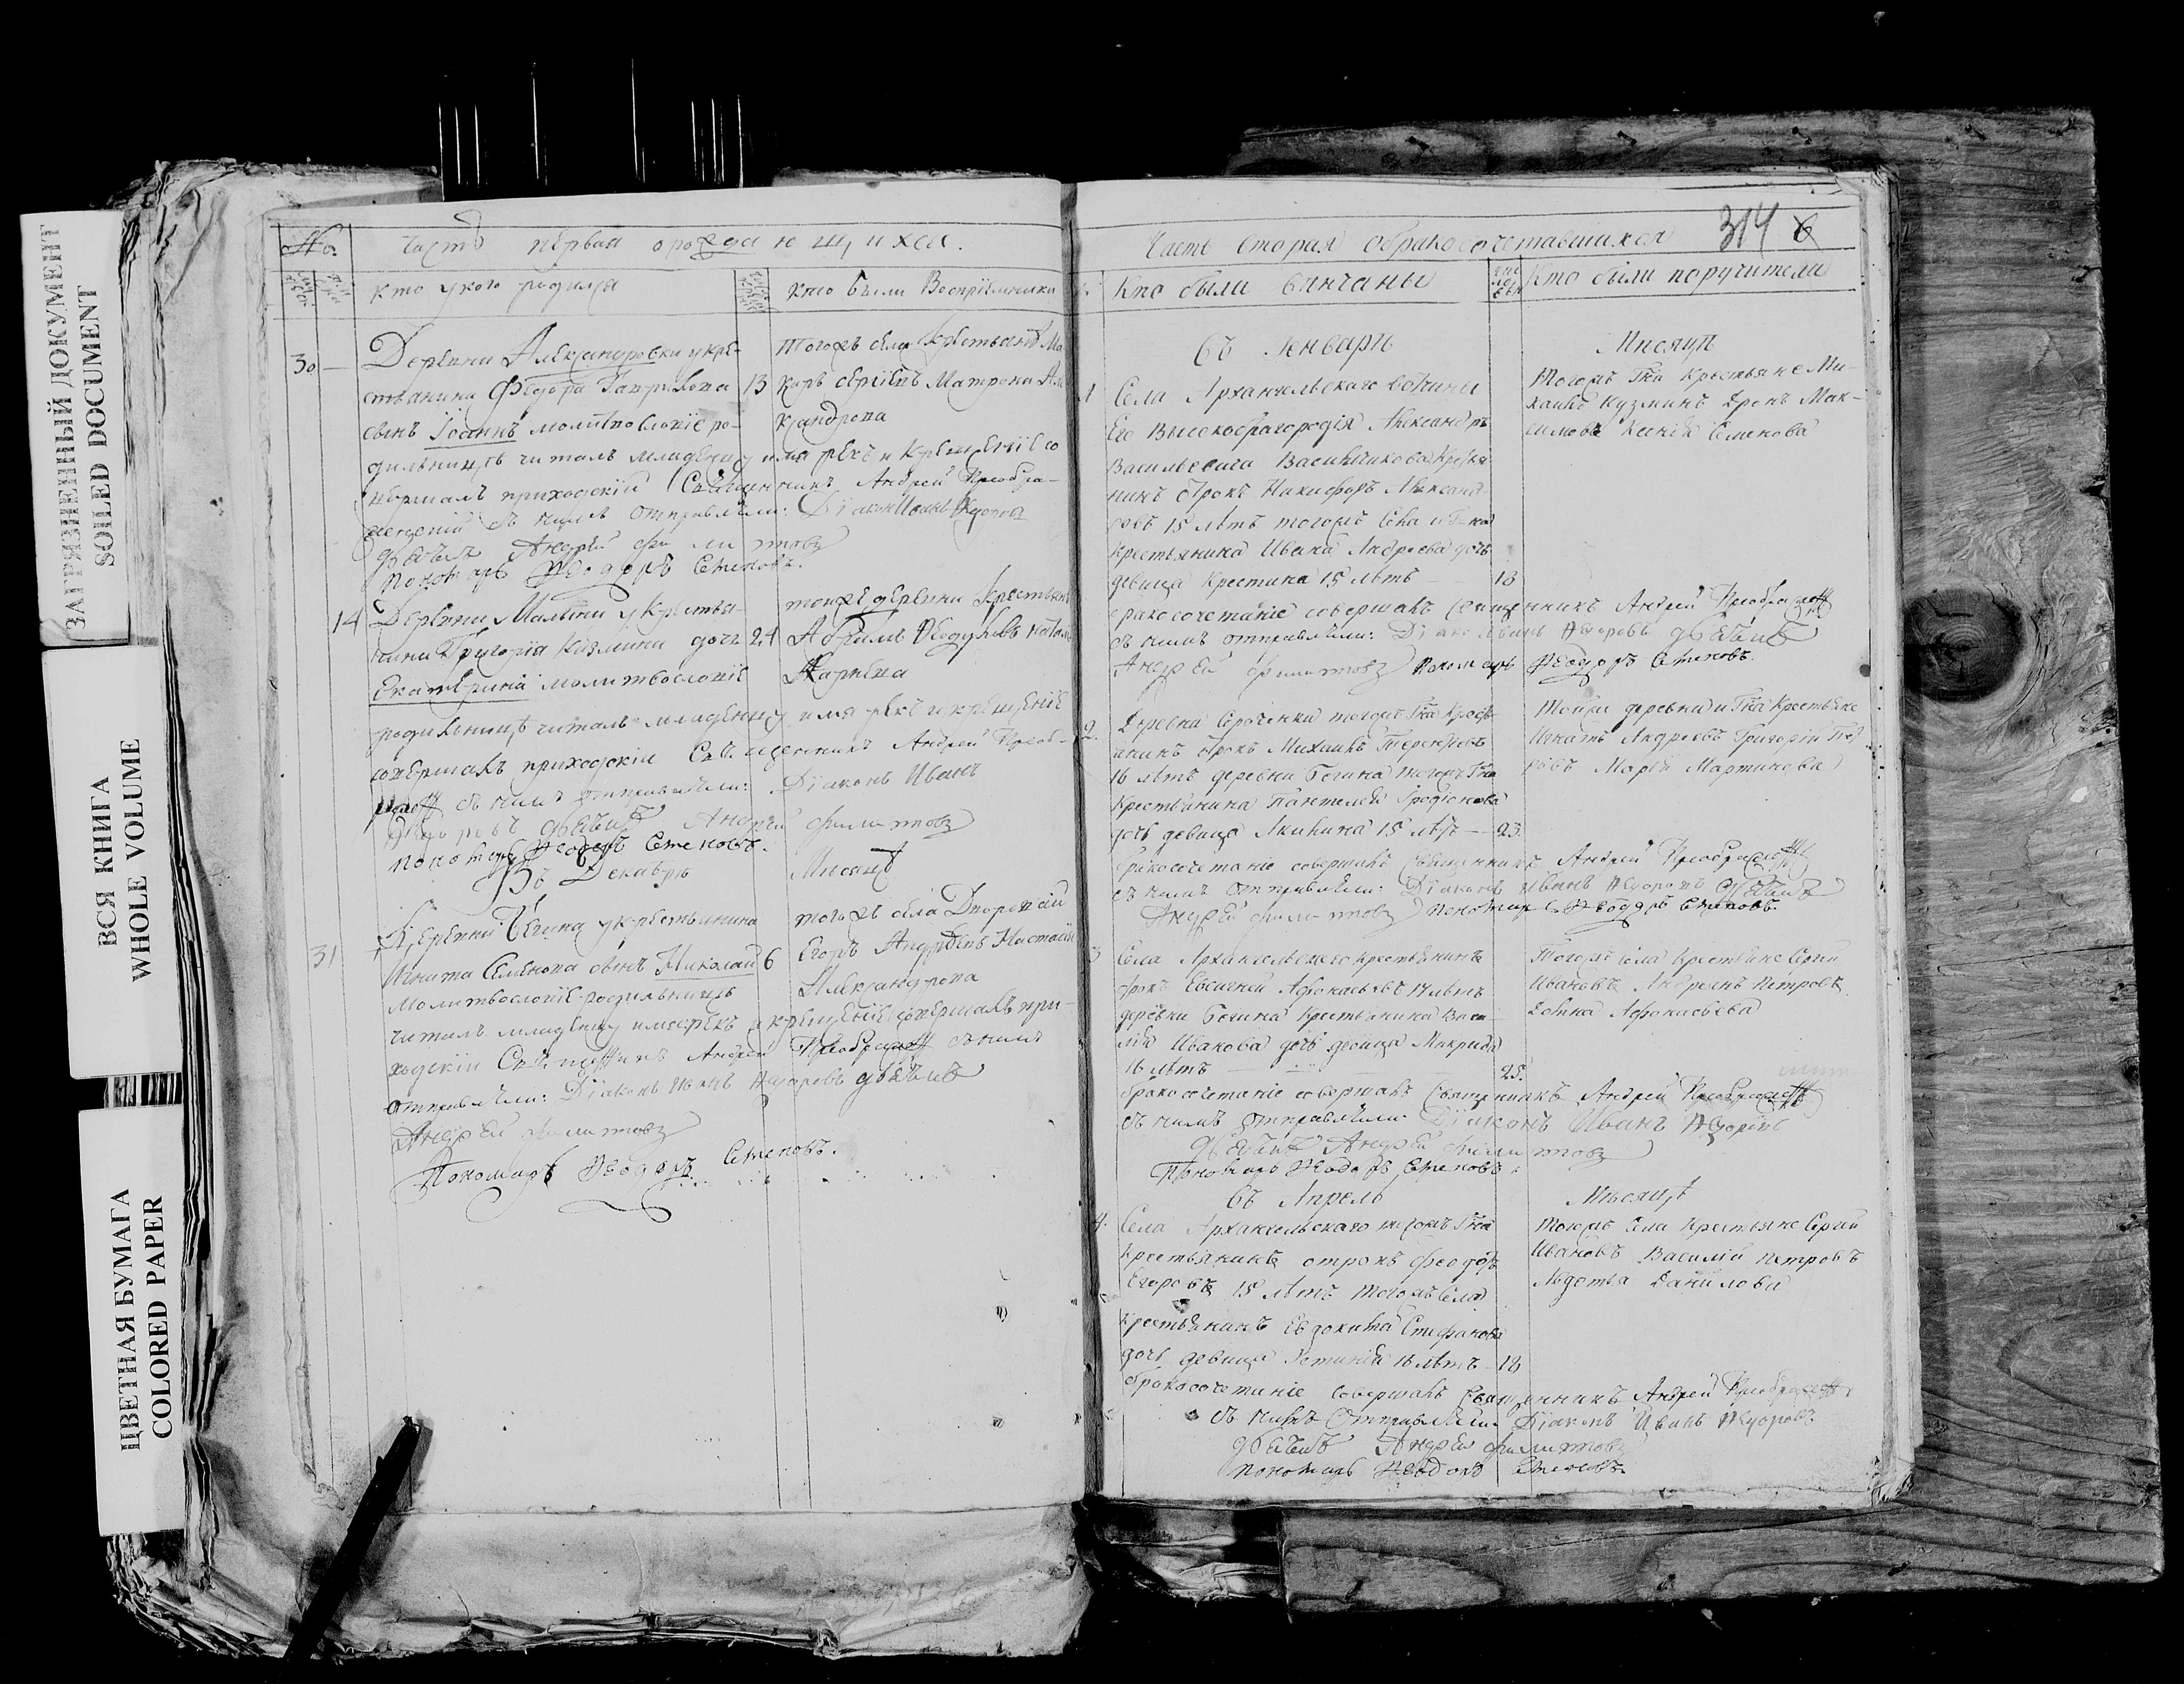 ЗАГРЯЗНЕННЫЙ ДОКУМЕНТ
SOILED DOCUMENT
ВСЯ КНИГА
WHOLE VOLUME
ЦВЕТНАЯ БУМАГА
COLORED PAPER
№
Часть первая о рождающихся.
кто у кого родился
кто были Восприемники
30
Деревни Александровки у кре-
стьянина Федора Гаврилова 13
сынъ Іоаннъ молитвословіе ро-
дильницѣ читалъ младенцу имя рекъ и крещеніе со
вершалъ приходскій Священникъ Андрей Преобра-
съ нимъ отправляли: Діаконъ Иванъ Ѳедоровъ
дьячекъ Андрей Филиповъ
Пономарь Ѳеодоръ Семеновъ.
тогожъ села крестьянинъ Ма
каръ Матрона Але
ксандрова
14
Деревни у крестья-
нина Григорія Казмина дочь 24
Екатерина молитвословіе
родильницѣ читалъ младенцу имя рекъ и крещеніе
совершалъ приходскій Священникъ Андрей Преоб-
съ нимъ отправляли: Діаконъ Иванъ
Ѳедоровъ дьячекъ Андрей Филиповъ
пономарь Ѳеодоръ Семеновъ.
тойже деревни крестьянинъ
Карпова
Въ Декабрѣ Мѣсяцѣ
31
Деревни Бегина у крестьянина
Игната Семенова сынъ Николай 6
молитвословіе родильницѣ
читалъ младенцу имя рекъ и крещеніе совершалъ при-
ходскій Священникъ Андрей съ нимъ
отправляли: Діаконъ Иванъ Ѳедоровъ дьячекъ
Андрей Филиповъ
Пономарь Ѳеодоръ Семеновъ.
тогожъ села Дворовой
Егоръ Андреевъ Настасья
Александрова
Часть вторая о бракосочетавшихся
314 6
Кто были винчаны
Кто были поручители
Въ Январи Мисяцѣ
1
Села Архангельскаго вотчины
Его Высокоблагородія Александръ
Васильевича Васильчикова кресья-
нинъ отрокъ Никифоръ Александ-
ровъ 15 лѣтъ тогожъ села и Гна
крестьянина Ивана Андреева дочь
девица Крестина 15 лѣтъ 18
бракосочетаніе совершалъ Священникъ Андрей
съ нимъ отправляли: Діаконъ Иванъ Ѳедоровъ дьячекъ
Андрей Филиповъ Пономарь Ѳеодоръ Семеновъ.
Тогожъ Гна крестьяне Ми-
хайла Кузминъ Дронъ Мак-
симовъ Ксенія Семенова
2.
Деревни тогожъ Гна
отрокъ Михаилъ Терентьевъ
16 лѣтъ деревни Бегина тогожъ Гна
крестьянина Пантелея Родіонова
дочь девица Акилина 15 лѣтъ 23.
бракосочетаніе совершалъ Священникъ Андрей
съ нимъ отправляли: Діаконъ Иванъ Ѳедоровъ дьячекъ
Андрей Филиповъ пономарь Ѳеодоръ Семеновъ.
Тойже деревни и Гна крестьяне
Игнатъ Андреевъ Григорій Пет
ровъ Марья Мартинова
3
Села Архангельскаго крестьянинъ
отрокъ Евсигней Афонасьевъ 17 лѣтъ
деревни Бегина крестьянина Васи-
лія Иванова дочь девица Макрида
16 лѣтъ 25.
бракосочетаніе совершалъ Священникъ Андрей
съ нимъ отправляли: Діаконъ Иванъ Ѳедоровъ
дьячекъ Андрей Филиповъ
Пономарь Ѳеодоръ Семеновъ.
Тогожъ села крестьяне Сергій
Ивановъ Андреянъ Петровъ
Афонасьева
Въ Апрель Мѣсяцѣ
4.
Села Архангельскаго тогожъ Гна
крестьянинъ отрокъ Феодоръ
Егоровъ 15 лѣтъ тогожъ села
крестьянинъ Евдокима Стефанова
дочь девица Фетинія 16 лѣтъ 18
бракосочетаніе совершалъ Священникъ Андрей
съ нимъ отправляли Діаконъ Иванъ Ѳедоровъ
дьячекъ Андрей Филиповъ
пономарь Ѳеодоръ Семеновъ.
тогожъ села крестьяне Сергій
Ивановъ Василій Петровъ
Авдотья Данилова